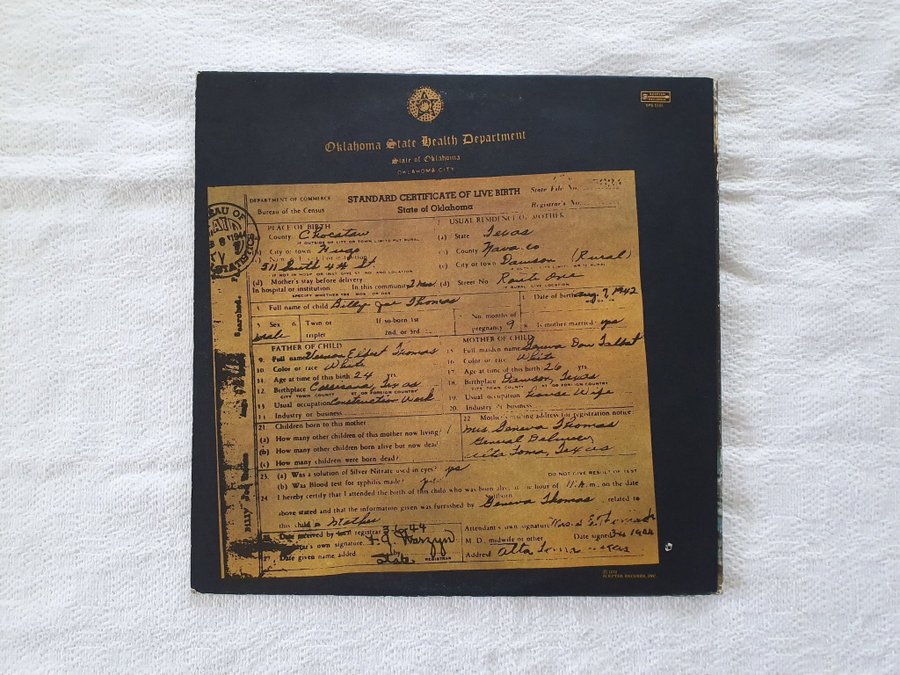 SCEPTER RECORDS
Oklahoma State Health Department
State of Oklahoma
OKLAHOMA CITY
DEPARTMENT OF COMMERCE
Bureau of the Census
STANDARD CERTIFICATE OF LIVE BIRTH
State of Oklahoma
State File No.
Registrar's No.
PLACE OF BIRTH
County Choctaw
IF OUTSIDE OF CITY OR TOWN LIMITS PUT RURAL
City or town Hugo
511 South 4th St
IF NOT IN HOSP. OR INST. GIVE ST. NO. AND LOCATION
(d) Mother's stay before delivery
In hospital or institution In this community
SPECIFY WHETHER YRS. MOS. OR
USUAL RESIDENCE OF MOTHER
(a) State Texas
(b) County Navarro
(c) City or town Dawson (Rural)
(d) Street No. Route One
IF RURAL GIVE LOCATION
Full name of child Billy Joe Thomas
Date of birth Aug. 7, 1942
5 Sex male
6. Twin or triplet
If so-born 1st 2nd, or 3rd
No. months of pregnancy 9
8. Is mother married yes
FATHER OF CHILD
9. Full name Vernon Elbert Thomas
10. Color or race White
11. Age at time of this birth 24 yrs
12. Birthplace Corsicana, Texas
CITY TOWN COUNTY ST OR FOREIGN COUNTRY
13. Usual occupation Construction Work
14. Industry or business
MOTHER OF CHILD
15 Full maiden name Geneva Don Talbat
16. Color or race White
17. Age at time of this birth 26 yrs
18. Birthplace Dawson, Texas
CITY TOWN COUNTY ST OR FOREIGN COUNTRY
19. Usual occupation House Wife
20. Industry or business
21 Children born to this mother
(a) How many other children of this mother now living? 1
(b) How many other children born alive but now dead?
(c) How many children were born dead?
22 Mother's mailing address for registration notice:
Mrs Geneva Thomas
General Delivery
Alta Loma, Texas
23. (a) Was a solution of Silver Nitrate used in eyes? yes
(b) Was Blood test for syphilis made? yes
DO NOT GIVE RESULT OF TEST
24 I hereby certify that I attended the birth of this child who was born alive at the hour of 11 A.m. on the date
above stated and that the information given was furnished by Geneva Thomas, related to
this child as Mother
Date received by local registrar 3/6/44
Registrar's own signature
REGISTRAR
Date given name added
by State
Attendant's own signature
M. D. midwife or other
Date signed
Address Alta Loma Texas
BUREAU OF
1944
STATISTICS
Searched.
Billy Joe Thomas
SCEPTER RECORDS, INC.